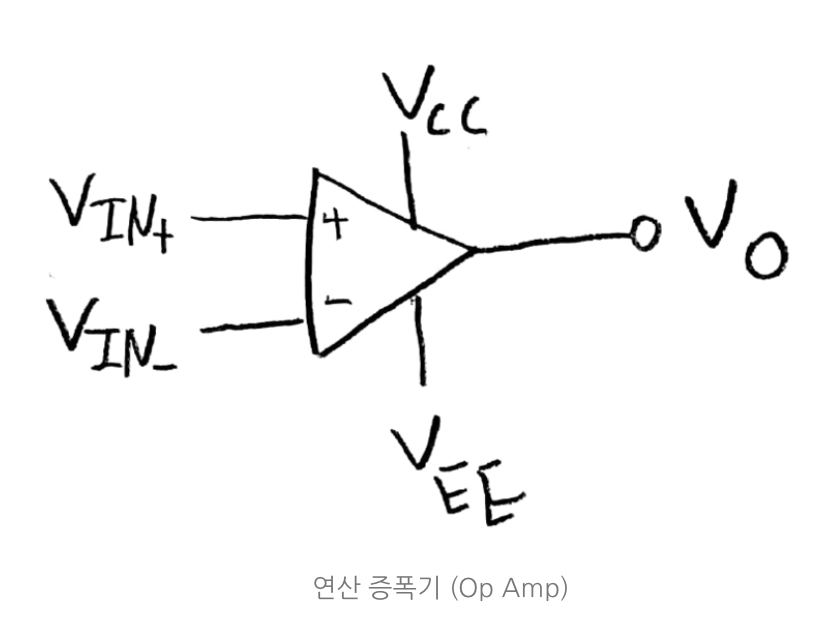 VCC
VIN+
+
VO
-
VIN-
VEE
연산 증폭기 (Op Amp)